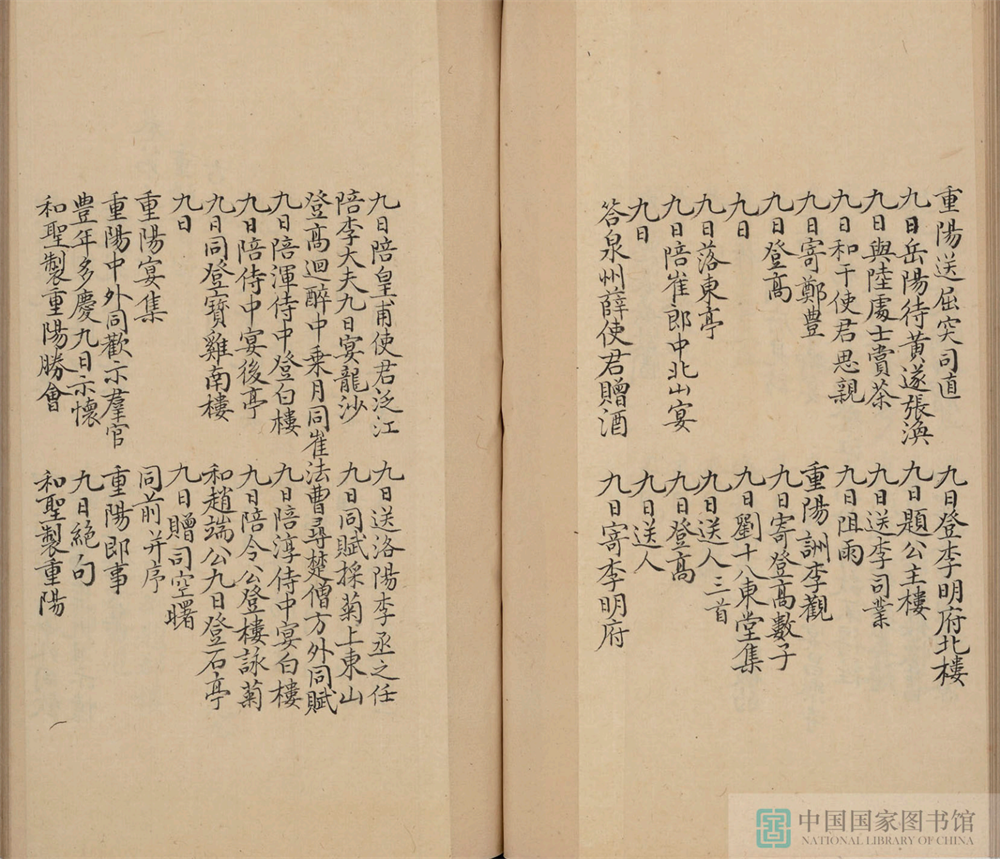 重陽送屈突司直 九日登李明府北樓
九日岳陽待黃遂張渙 九日題公主樓
九日與陸處士賞茶 九日送李司業
九日和于使君思親 九日阻雨
九日寄鄭豊 重陽詶李觀
九日登高 九日寄登高數子
九日 九日劉十八東堂集
九日落東亭 九日送人三首
九日陪崔郎中北山宴 九日登高
九日 九日送人
答泉州薛使君贈酒 九日寄李明府
九日陪皇甫使君泛江 九日送洛陽李丞之任
陪李大夫九日宴龍沙 九日同賦採菊上東山
登高迴醉中乗月同崔法曹尋楚僧方外同賦
九日陪渾侍中登白樓 九日陪渟侍中宴白樓
九日陪侍中宴後亭 九日陪令公登樓詠菊
九日同登寶雞南樓 和趙端公九日登石亭
九日 九日贈司空曙
重陽宴集 同前并序
重陽中外同歡示羣官 重陽即事
豊年多慶九日示懷 九日絕句
和聖製重陽勝會 和聖製重陽
中国国家图书馆
NATIONAL LIBRARY OF CHINA